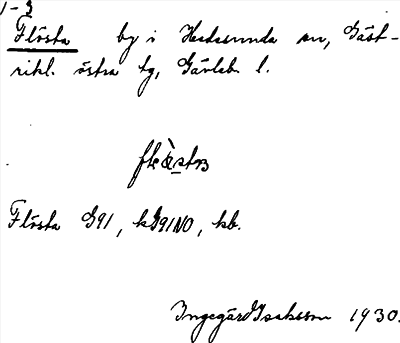 1-3
Flösta by i Hedesunda sn, Gäst-
rikl. östra tg, Gävleb. l.
Flösta G91, kG91NO, kb.
Ingegärd Isaksson 1930.